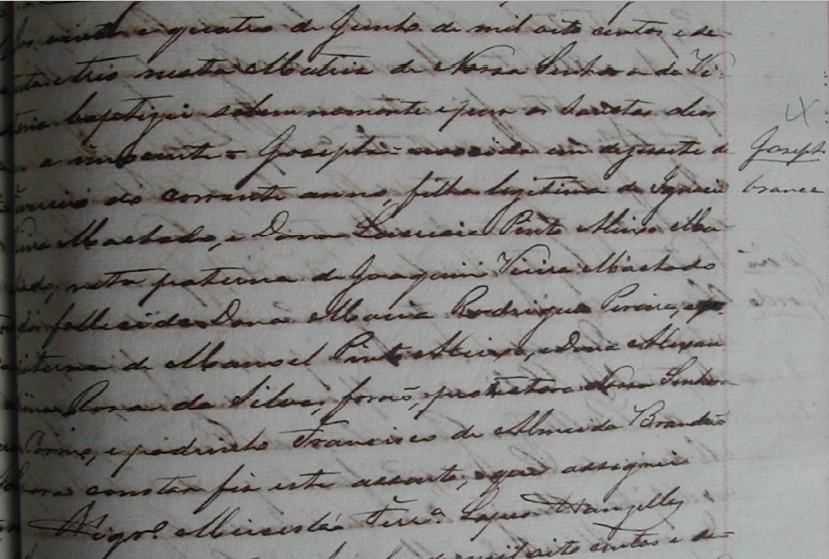 vinte e quatro de Junho de mil oito centos e se-
tenta e tres nesta Matriz de Nossa Senhora da Vi-
toria baptizei solemnemente e puz os Santos oleos
a innocente = Josepha = nascida em dezesete de
Fevereiro do corrente anno, filha legitima de Ignacio
Vieira Machado, e Dona Lucrecia Pinto Aleixo Ma-
chado, neta paterna de Joaquim Vieira Machado
fallecido e Dona Maria Rodrigues Pereira, e
materna de Manoel Pinto Aleixo, e Dona Alexan
drina Rosa da Silva, forão, protectora Nossa Senhora
e padrinho Francisco de Almeida Brandão
constar fiz este assento, e que assignei
Vigrº Misceslão Ferrª Lopes Wanzeller
mil oito centos e se-
Joseph
branca